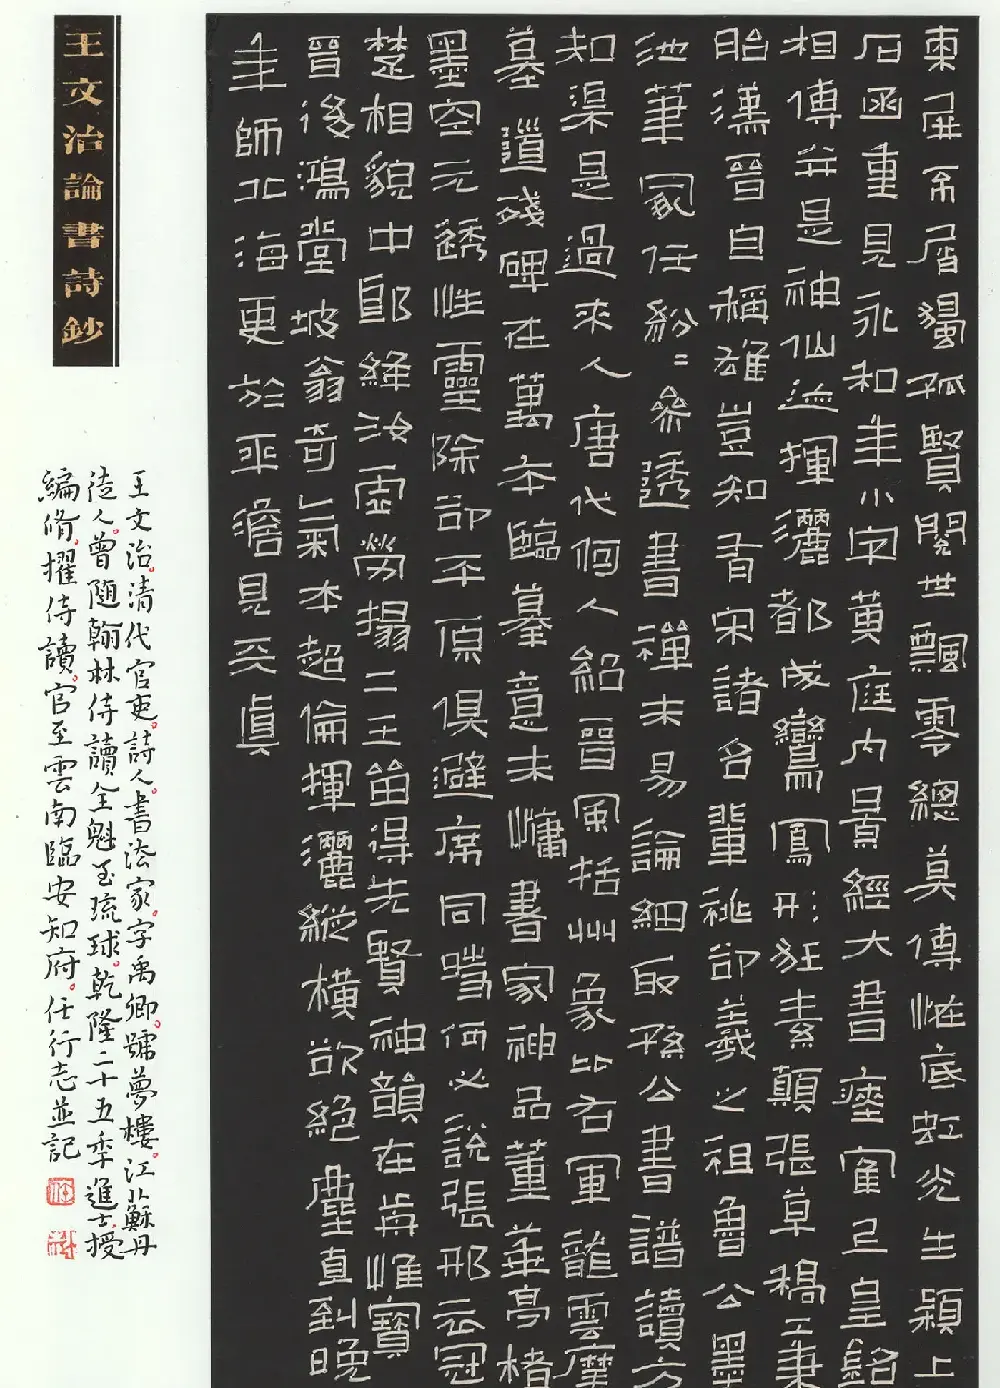 屏屑獨孤賢閱世飄零總莫傳恠底虹光生穎上
石函重見永和年小字黃庭內景經大書瘞寉上皇銘
相傳并是神仙迹揮灑都成鸞鳳形狂素顛張草稿工秉
胎漢晉自稱雄豈知有宋諸名輩祧卻羲之祖魯公墨
池筆冢任紛〻參透書禪未易論細取孫公書譜讀方
知渠是過來人唐代何人紹晉風括州象比右軍龍雲麾
墓道殘碑在萬本臨摹意未慵書家神品董華亭楮
墨空元透性靈除卻平原俱避席同時何必說張邢云冠
楚相貌中郎絳汝虛勞搨二王留得先賢神韻在苒惟寶
晉後鴻堂坡翁奇氣本超倫揮灑縱橫欲絕塵直到晚
年師北海更於平澹見天真
王文治論書詩鈔
王文治。清代官吏。詩人。書法家。字禹卿。號夢樓。江蘇丹
徒人。曾隨翰林侍讀全魁至琉球。乾隆二十五年進士。授
編脩。擢侍讀。官至雲南臨安知府。任行志並記